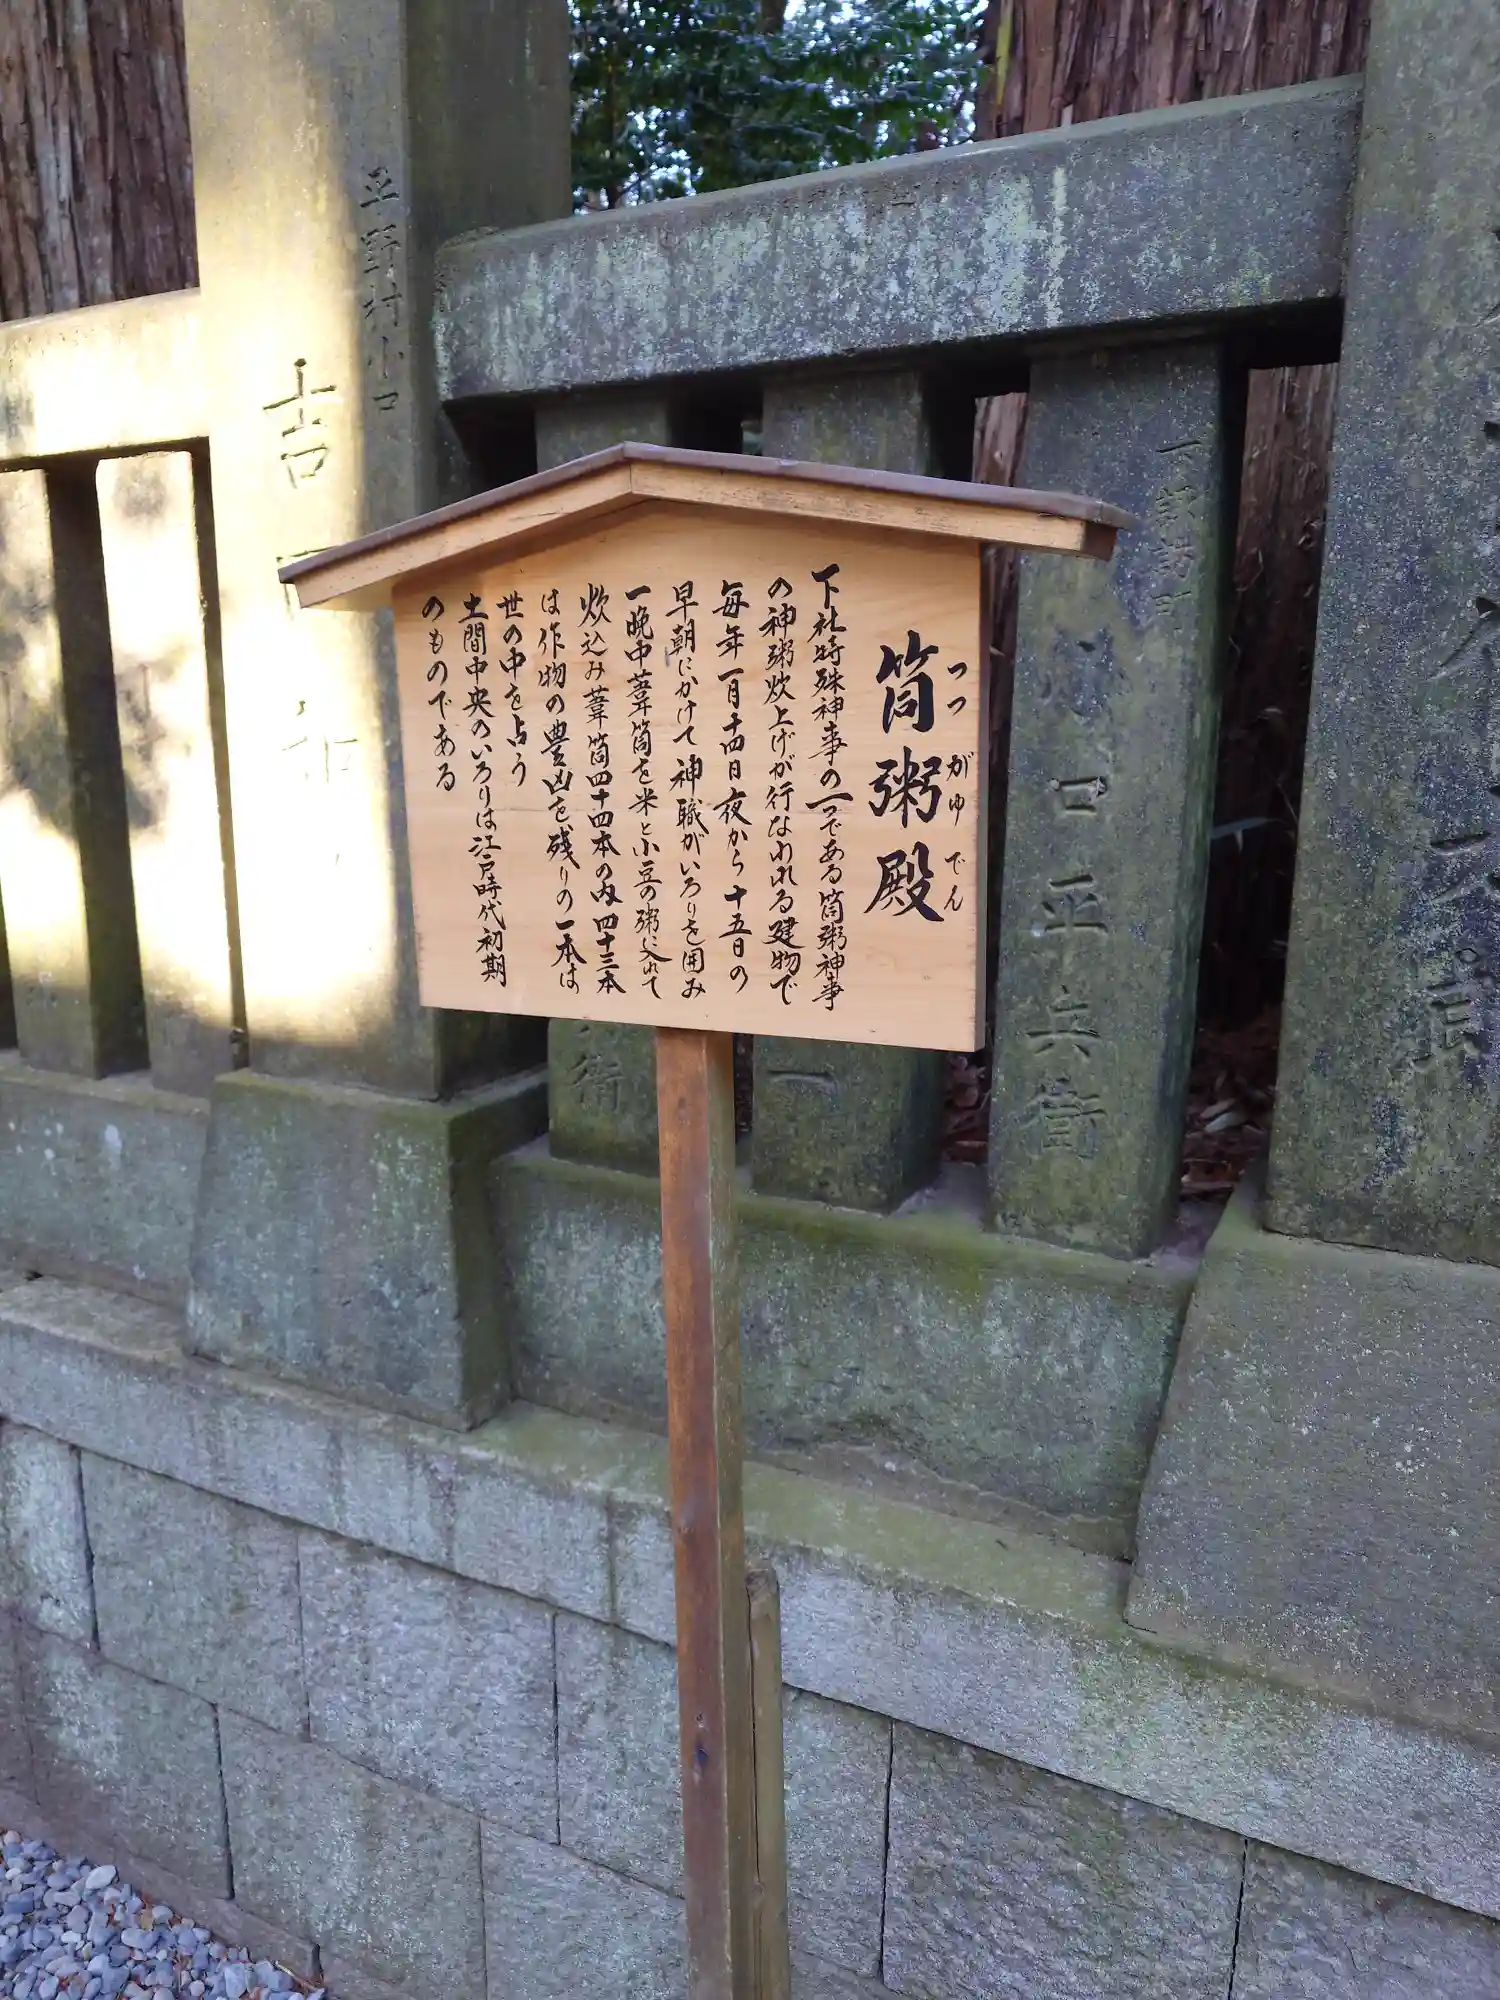 筒粥殿
つつがゆでん
下社特殊神事の一つである筒粥神事
の神粥炊上げが行なわれる建物で
毎年一月十四日夜から十五日の
早朝にかけて神職がいろりを囲み
一晩中葦筒を米と小豆の粥に入れて
炊込み葦筒四十四本の内四十三本
は作物の豊凶を、残りの一本は
世の中を占う
土間中央のいろりは江戸時代初期
のものである
平野村小口
吉
下諏訪町
口平兵衛
衛
一